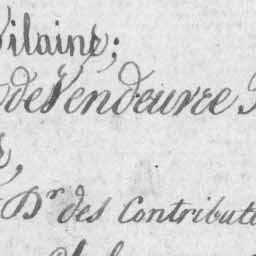 Vilaine;
de Vendeuvre
Dr des Contributi